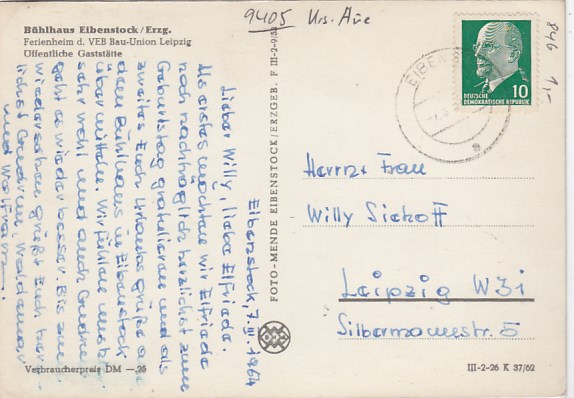 9405 Krs. Aue
846 1,-
Bühlhaus Eibenstock/Erzg.
Ferienheim d. VEB Bau-Union Leipzig
Öffentliche Gaststätte
Eibenstock, 7.III.1964
Lieber Willy, liebe Elfriede.
Als erstes möchten wir Elfriede
noch nachträglich herzlichst zum
Geburtstag gratulieren und als
zweites Euch Urlaubsgrüße aus
dem Bühlhaus in Eibenstock
übermitteln. Wir fühlen uns hier
sehr wohl und auch Gudrun
geht es wieder besser. Bis zum
Wiedersehen grüßt Euch herz-
lichst Gudrun, Waldemar
und Wolfram.
FOTO-MENDE EIBENSTOCK/ERZGEB. F III-2-9/59
EIBENS
10
DEUTSCHE
DEMOKRATISCHE REPUBLIK
Herrn u. Frau
Willy Sickoff
Leipzig W31
Silbermannstr. 5
Verbraucherpreis DM —,25
III-2-26 K 37/62